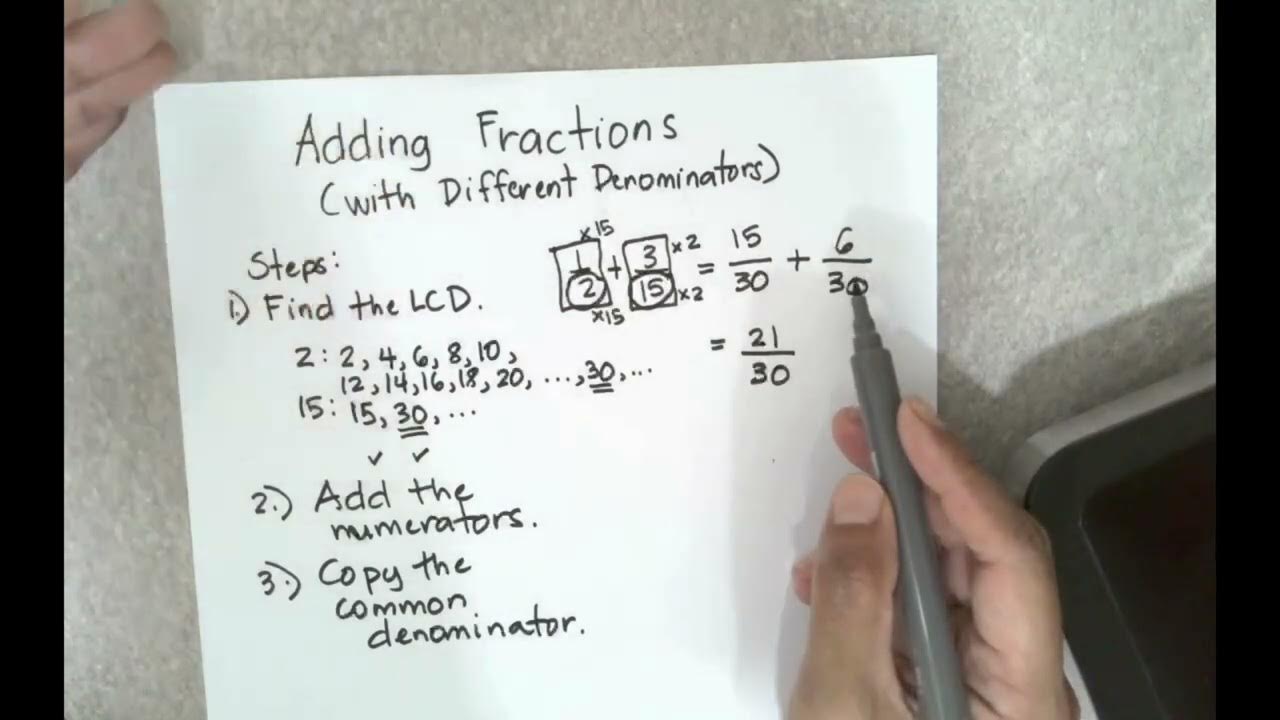 Adding Fractions
(with Different Denominators)
Steps:
1.) Find the LCD.
2: 2, 4, 6, 8, 10,
12, 14, 16, 18, 20, ..., 30, ...
15: 15, 30, ...
✓ ✓
2.) Add the
numerators.
3.) Copy the
common
denominator.
x15
1/2 + 3/15 x2 = 15/30 + 6/30
x15 x2
= 21/30